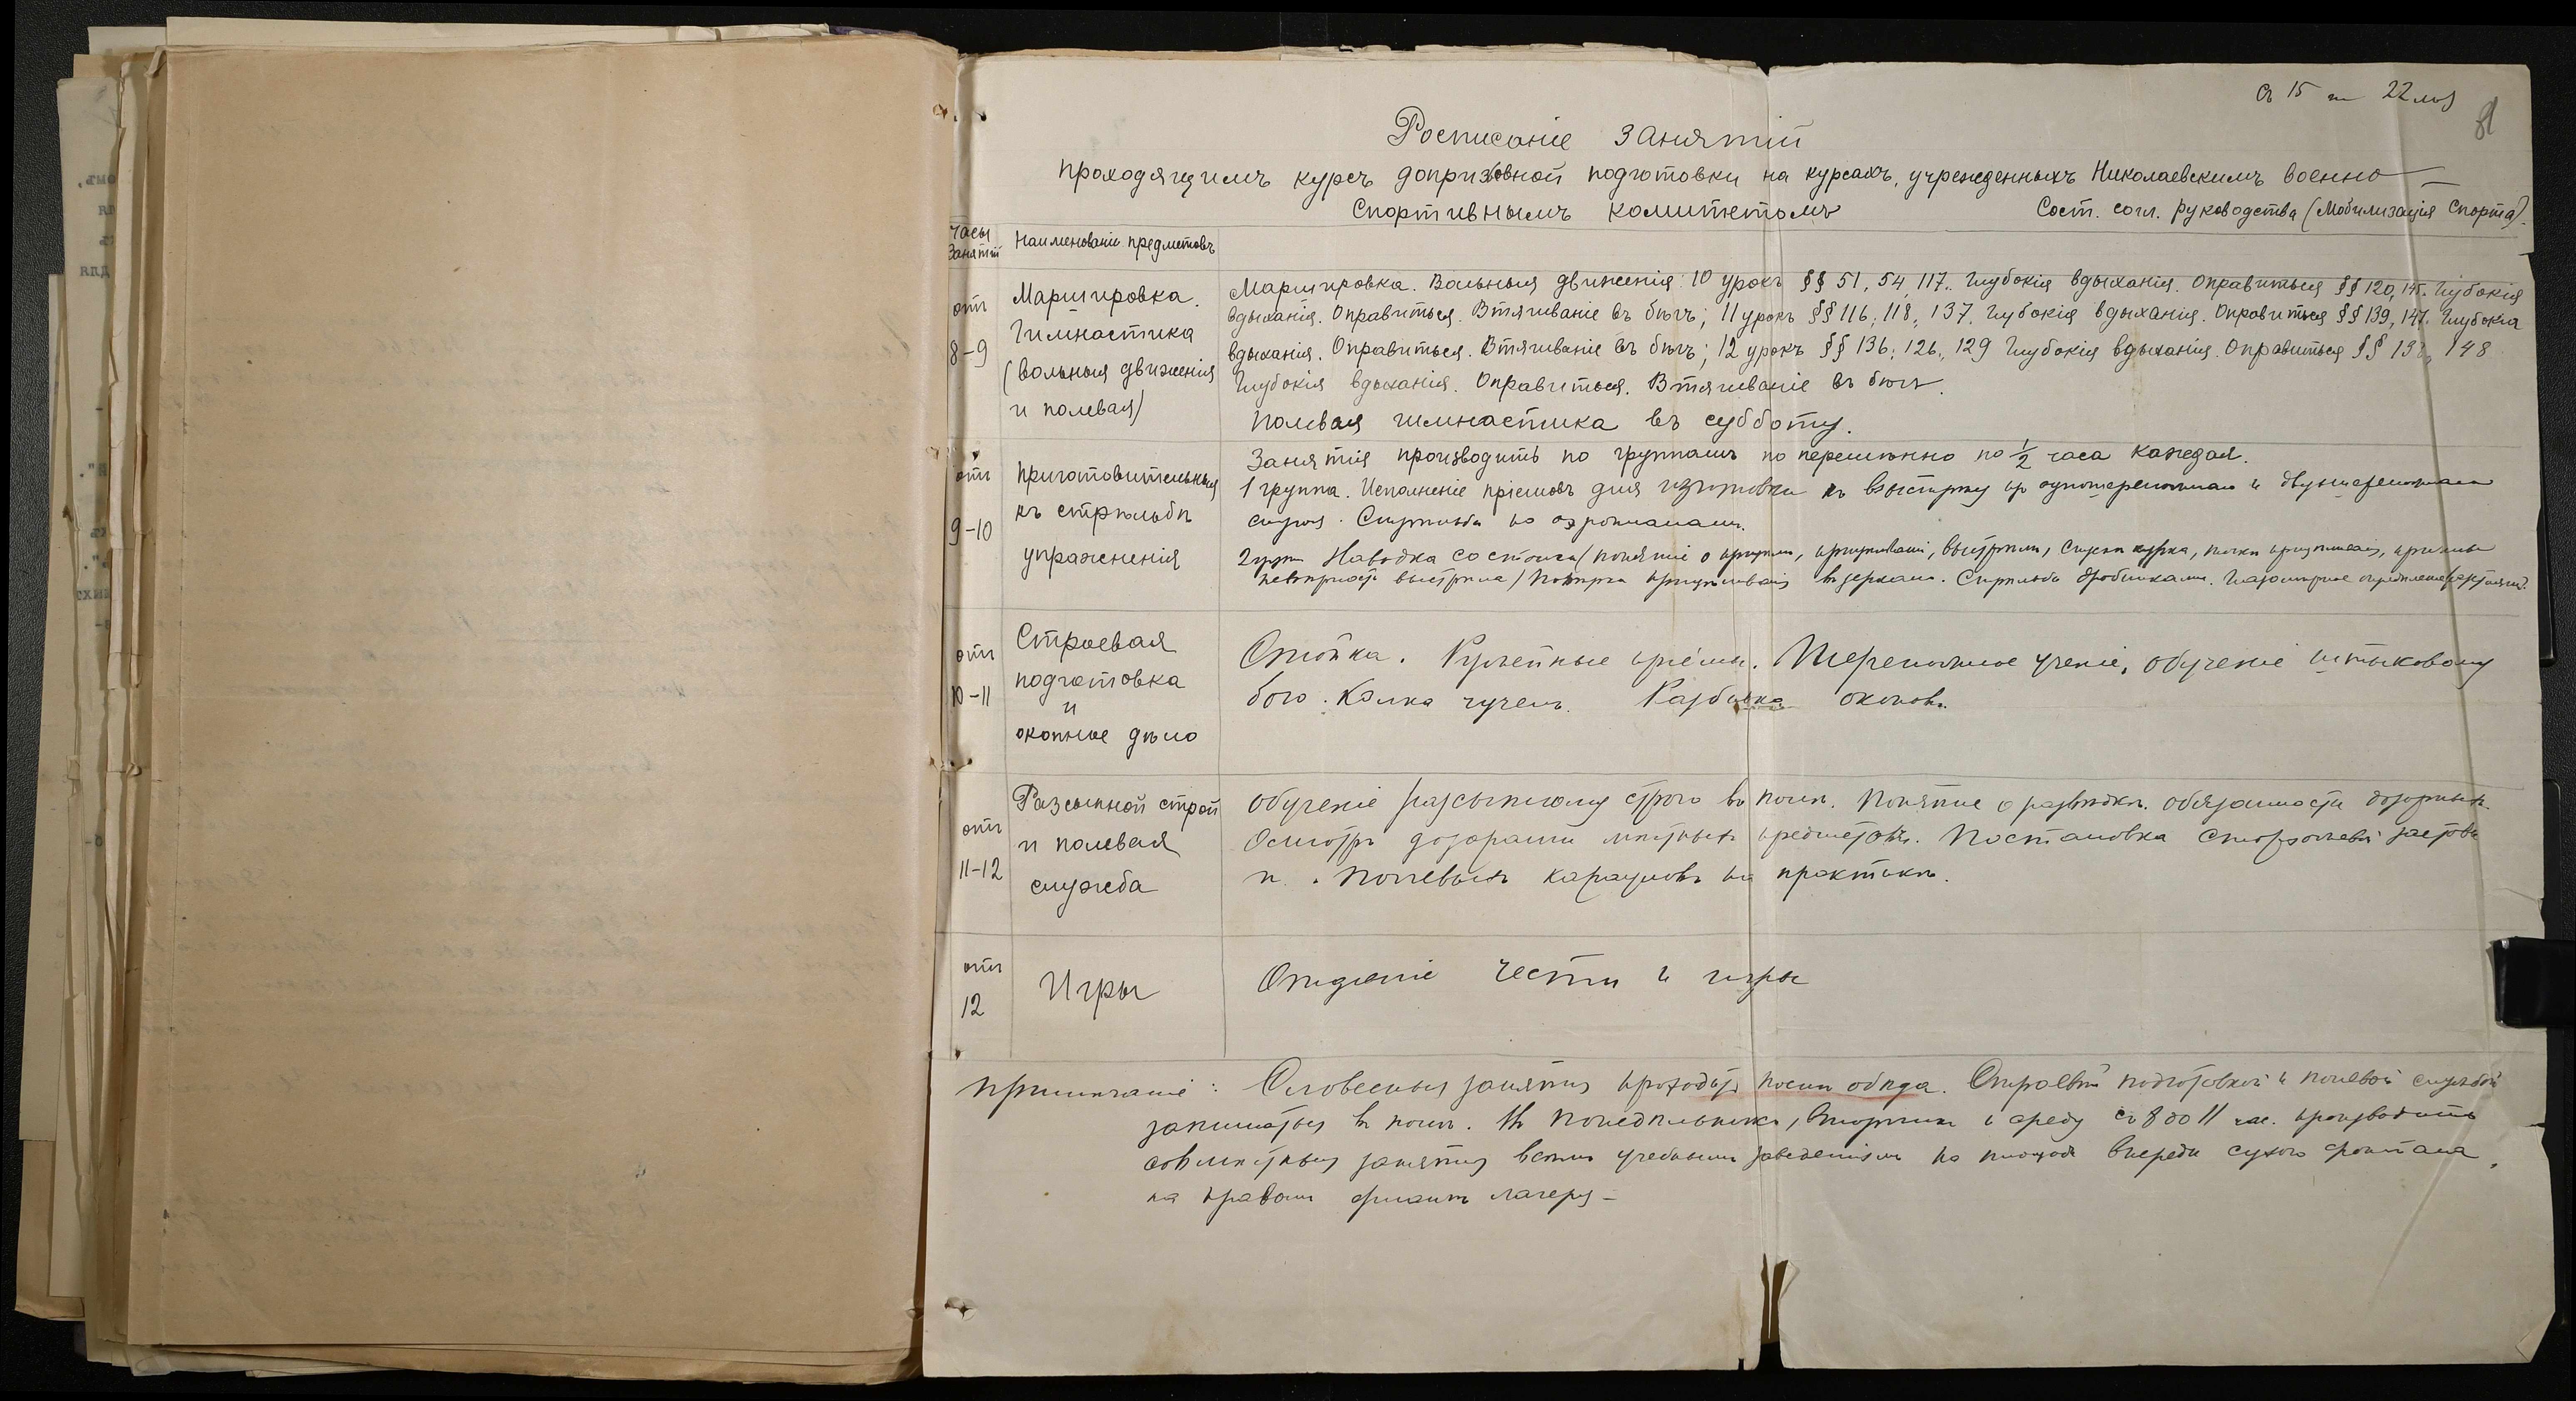 Съ 15 по 22 мая
81
Росписаніе занятій
проходящимъ курсъ допризывной подготовки на курсахъ, учрежденныхъ Николаевскимъ Военно-
Спортивнымъ комитетомъ
Сост. согл. руководства (Мобилизація Спорта).
Часы занятій
Наименованіе предметовъ
отъ 8-9
Маршировка.
Гимнастика
(вольныя движенія
и полевая)
Маршировка. Вольныя движенія: 10 урокъ §§ 51, 54, 117. Глубокія вдыханія. Оправиться §§ 120, 145. Глубокія
вдыханія. Оправиться. Втягиваніе въ бѣгъ; 11 урокъ §§ 116, 118, 137. Глубокія вдыханія. Оправиться §§ 139, 147. Глубокія
вдыханія. Оправиться. Втягиваніе въ бѣгъ; 12 урокъ §§ 136, 126, 129 Глубокія вдыханія. Оправиться §§ 138, 148
Глубокія вдыханія. Оправиться. Втягиваніе въ бѣгъ.
Полевая гимнастика въ субботу.
отъ 9-10
Приготовительныя
къ стрѣльбѣ
упражненія
Занятія производить по группамъ по перемѣнно по 1/2 часа каждая.
1 группа. Исполненіе пріемовъ для изготовки къ выстрѣлу въ одношереножномъ и двушереножномъ
строѣ. Стрѣльба по
2 гр. Наводка со станка (понятіе о прицѣлѣ, прицѣливаніи, выстрѣлѣ, спускъ курка, точки прицѣливанія,
выстрѣла) Повѣрка прицѣливанія въ зеркало. Стрѣльба дробинками. Глазомѣрное опредѣленіе разстояній.
отъ 10-11
Строевая
подготовка
и
окопное дѣло
Стойка. Ружейные пріемы. Шереножное ученіе, обученіе штыковому
бою. Колка чучелъ. Разбивка окоповъ.
отъ 11-12
Разсыпной строй
и полевая
служба
обученіе разсыпному строю въ полѣ. Понятіе о развѣдкѣ. Обязанности дозорныхъ.
Осмотръ дозорами мѣстныхъ предметовъ. Постановка сторожевыхъ заставъ
и полевыхъ карауловъ на практикѣ.
отъ 12
Игры
Отданіе чести и игры
Примѣчаніе: Словесныя занятія проходить послѣ обѣда. Строевой подготовкой и полевой службой
заниматься въ полѣ. Въ понедѣльникъ, вторникъ и среду съ 8 до 11 час. производить
совмѣстныя занятія всѣмъ учебнымъ заведеніямъ на площади впереди сухого фонтана,
на правомъ флангѣ лагеря —